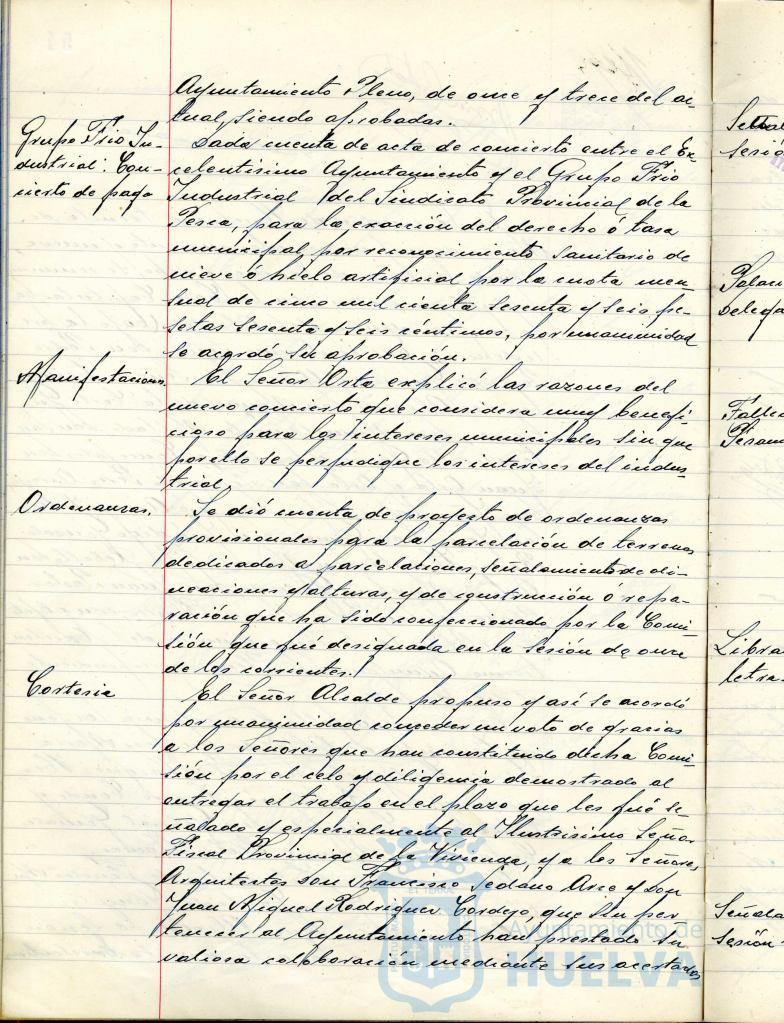 Ayuntamiento Pleno, de once y trece del ac-
tual siendo aprobadas.
Grupo Frio In-
dustrial: Con-
cierto de pago
Dada cuenta de acta de concierto entre el Ex-
celentísimo Ayuntamiento y el Grupo Frio
Industrial del Sindicato Provincial de la
Pesca, para la exacción del derecho ó tasa
municipal por reconocimiento sanitario de
nieve ó hielo artificial por la cuota men-
sual de cinco mil cienta sesenta y seis pe-
setas sesenta y seis céntimos, por unanimidad
se acordó su aprobación.
Manifestaciones.
El Señor Orta explicó las razones del
nuevo concierto que considera muy benefi-
cioso para los intereses municipales sin que
por ello se perjudique los intereses del indus-
trial.
Ordenanzas.
Se dió cuenta de proyecto de ordenanzas
provisionales para la parcelación de terrenos
dedicados a parcelaciones, señalamiento de ali-
neaciones y alturas, y de construcción ó repa-
ración que ha sido confeccionado por la Comi-
sión que fué designada en la sesión de once
de los corrientes.
Cortesia
El Señor Alcalde propuso y así se acordó
por unanimidad conceder un voto de gracias
a los Señores que han constituido dicha Comi-
sión por el celo y diligencia demostrado al
entregar el trabajo en el plazo que les fué se-
ñalado y especialmente al Ilustrisimo Señor
Fiscal Provincial de la Vivienda, y a los Señores
Arquitectos Don Francisco Sedano Arce y Don
Juan Miguel Rodriguez Cordejo, que sin per
tenecer al Ayuntamiento han prestado su
valiosa colaboración mediante sus acertados
Ayuntamiento de
HUELVA
sesión
Delega
Libra
letra
Señala
sesión